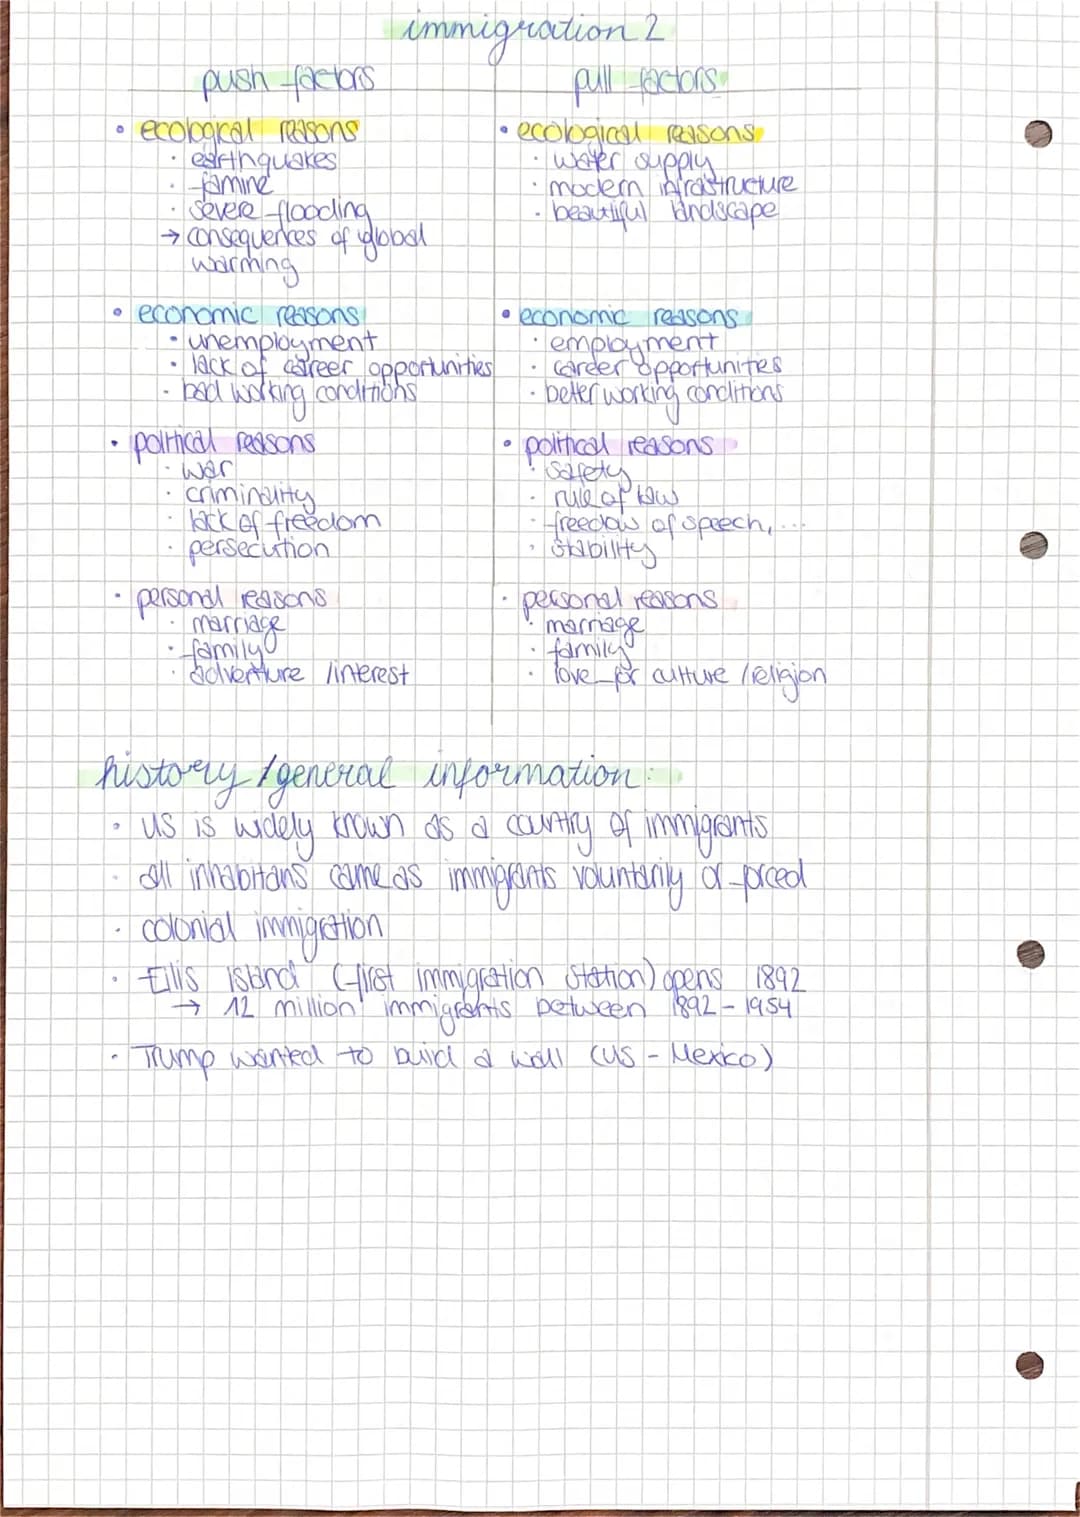 immigration 2
push factors
pull factors
• ecological reasons
· earthquakes
· famine
· severe flooding
→ consequences of global
warming
• economic reasons
· unemployment
· lack of career opportunities
· bad working conditions
• political reasons
· war
· criminality
· lack of freedom
· persecution
· personal reasons
· marriage
· family
· adventure / interest
• ecological reasons
· water supply
· modern infrastructure
· beautiful landscape
• economic reasons
· employment
· career opportunities
· better working conditions
• political reasons
· safety
· rule of law
· freedow of speech, ...
· stability
· personal reasons
· marriage
· family
· love for culture / religion
history / general information:
· US is widely known as a country of immigrants
· all inhabitans came as immigrants voluntarily or forced
· colonial immigration
· Ellis Island (first immigration station) opens 1892
→ 12 million immigrants between 1892 - 1954
· Trump wanted to build a wall (US - Mexico)